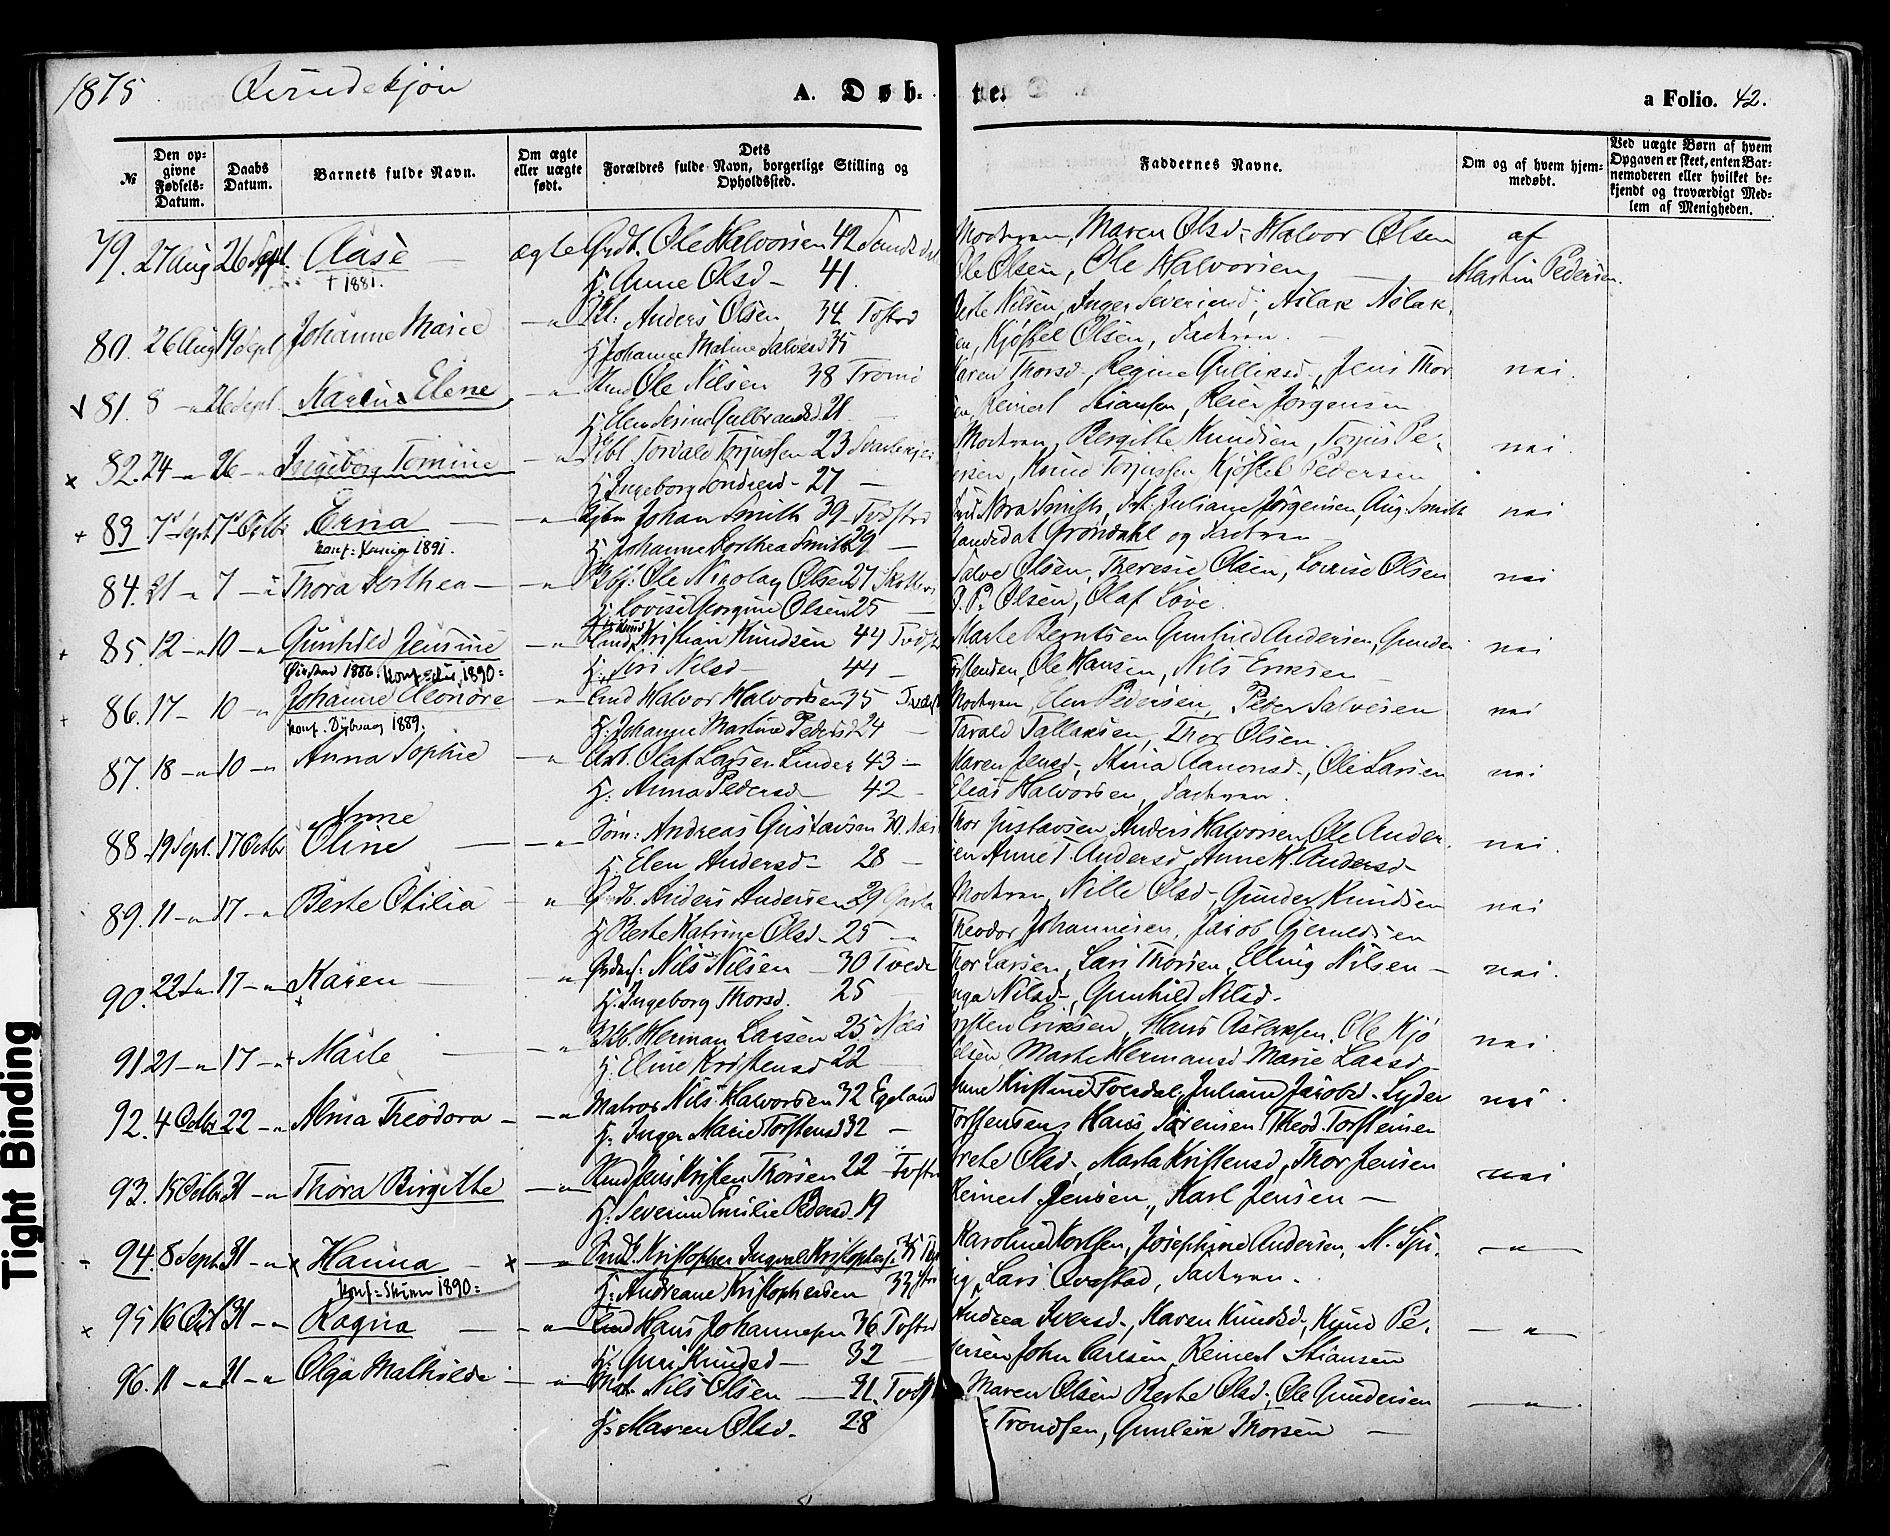 1875. Qvindekjøn A. Døb- te. a Folio. 42.
№
Den opgivne Fødsels-Datum.
Daabs Datum.
Barnets fulde Navn.
Om ægte eller uægte født.
Dets Forældres fulde Navn, borgerlige Stilling og Opholdssted.
Faddernes Navne.
Om og af hvem hjemmedøbt.
Ved uægte Børn af hvem Opgaven er skeet, enten Barnemoderen eller hvilket bekjendt og troværdigt Medlem af Menigheden.
79. 27 Aug 26 Sept. Aase — ægte Grdb. Ole Halvorsen 42 Modran, Maren Olsd-, Halvor Olsen af
† 1881. H. Anne Olsd- 41. Ole Olsen, Ole Halvorsen — Martin Pedersen.
80. 26 Aug 19 Sept Johanne Marie — " Anders Olsen 34 Tvstrd Nilsen, Inger Severinsd-, Aslak Aslak-
H. Johanne Malene Salvesd 35 en, Kjøstel Olsen, Fadran. —
81. 8 — " 26 Sept. Karine Elene — " Ole Nilsen 38 Tromø Karen Thorsd-, Regine Gulliksd-, Jens Thor nei.
H. Elen Serine Gulbrandsd 21 en, Reinert Stiansen, Reier Jørgensen
x 82. 24 — " 26 — " Ingeborg Tomine — " Torvald Torjussen 23 Modran, Bergitte Knudsen, Torjus Pe- nei.
H. Ingeborg Tondresd- 27 — ersen, Knud Torjussen, Kjøstel Pedersen
+ 83 7de Sept 7de Octbr Erna — " Johan Smith 39 Tvdstrd Nora Smith, Juliane Jørgensen, Aug. Smith nei
1891. H. Johanne Dorthea Smith 29 — Candidat Grøndahl og Fadran —
84. 21 — " 7 — " Thora Dorthea — " Ole Nicolay Olsen 27 Salve Olsen, Theresie Olsen, Lovise Olsen nei
H. Lovise Georgine Olsen 25 — O. P. Olsen, Olaf Løve.
+ 85. 12 — " 10 — " Gunhild Jensine — " Kristian Knudsen 44 Marte Berntsen Gunhild Andersen, Gunder nei
1886. 1890= H. Siri Nilsd- 44 — Ole Hansen, Nils Eriksen —
86. 17 — 10 — " Johanne Eleonore — " Halvor Halvorsen 35 Modran, Elen Pedersen, Peder Salvesen nei
Konf. Dybvaag 1889. H. Johanne Martine Pedersd 24 — Tarald Tallaksen, Thor Olsen.
87. 18 — " 10 — " Anna Sophie — " Arb. Olaf Larsen Linder 43 — Maren Jensd-, Stina Aanonsd-, Ole Larsen nei
H. Anna Pedersd 42 - Elias Halvorsen, Fadran.
Anne
88. 19 Sept. 17 Octbr Oline — " Søm: Andreas Gustavsen 30 Næs Thor Gustavsen, Anders Halvorsen, Ole Ander- nei.
H. Elen Andersd- 28 — en Anne T. Andersd, Anne K. Andersd-
89. 11 — " 17 — " Berte Otilia — " Anders Andersen 29 Modran, Nille Olsd-, Gunder Knudsen nei
H. Berte Katrine Olsd- 25 — Theodor Johannesen, Jacob Gjeruldsen
90. 22de " 17 — " Karen — " Nils Nilsen — 30 Tvede Thor Larsen, Lars Thorsen, Elling Nilsen — nei.
H. Ingeborg Thorsd. 25 Inga Nilsd-, Gunhild Nilsd-
91 21 — " 17 — " Marte — " Herman Larsen 25 Næs Torsten Eriksen, Hans Aslaksen, Ole Kjø nei.
H. Eline Kristensd 22 elsen, Marte Hermansd Marie Larsd-
92. 4 Octbr 22 — " Alma Theodora — " Matros Nils Halvorsen 32 Egeland Anne Kristine Tveedal, Juliane Jacobsd- Lyder nei.
H. Inger Marie Torstensd 32 — Torstensen, Hans Sørensen, Theod. Torstensen
93. 15 Octbr 31 — " Thora Birgitte — " Jens Kristen Thorsen 22 — Grete Olsd-, Marta Kristensd, Thor Jensen nei
H. Severine Emilie Pedersd- 19 Reinert Jensen, Karl Jensen —
94. 8 Sept. 31 — " x Hanna — x — " Kristopher Ingvald Kristophers. 35 Karoline Josephine Andersen, M. — " —
1890= H. Andreane Kristophersen 33 Lars Qvastad, Fadran.
x 95 16 Oct 31 — " Ragna — " Hans Johannesen 36 Tvstrd Andrea Iversd-, Karen Knudsd-, Knud Pe- — " —
H. Guri Knudsd — 32 — ersen John Carlsen, Reinert Stiansen
96. 11 — " 31 — " Olga Mathilde — " Mat. Nils Olsen — 31. Tvdst Maren Olsen Berte Olsd-, Ole Gundersen — " —
H. Maren Olsd. 28 Trondsen, Gunleik Thorsen —
Tight Binding